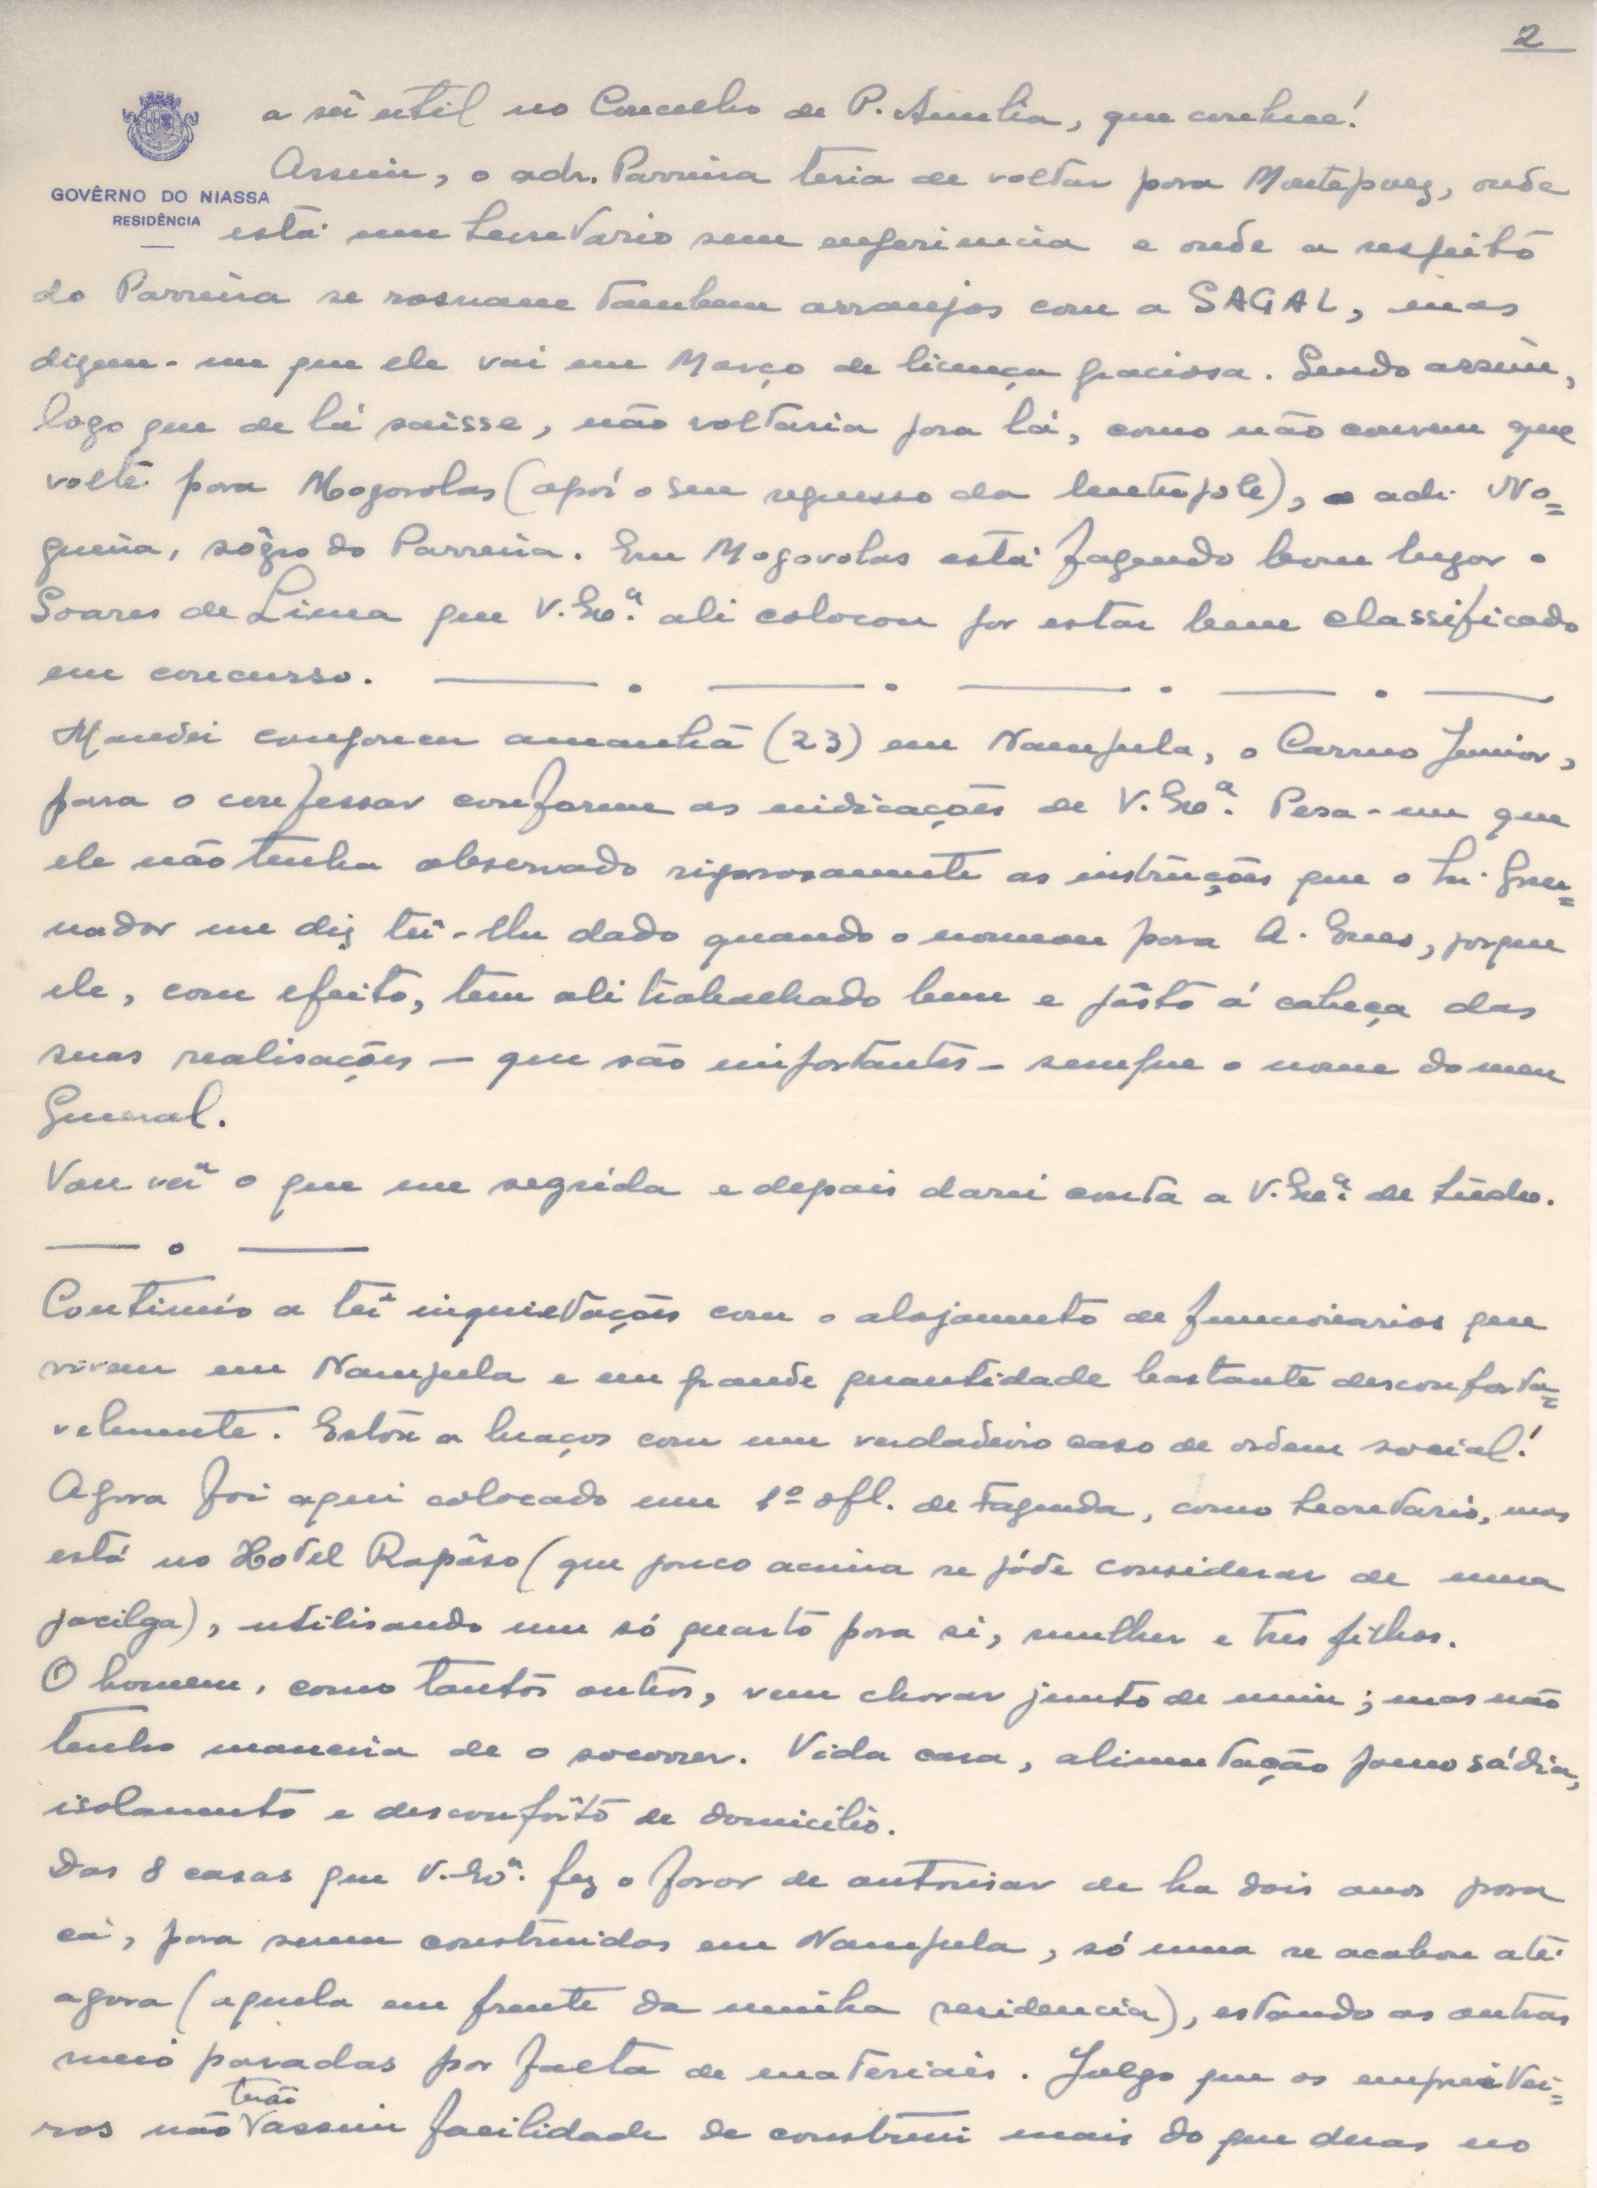 2
GOVÊRNO DO NIASSA
RESIDÊNCIA
a sêr util no Concelho de P. Amelia, que conhece!
Assim, o adr. Parreira teria de voltar para Montepuez, onde
está um Secretario sem experiencia e onde a respeito
do Parreira se rosnam tambem arranjos com a SAGAL, mas
dizem-me que ele vai em Março de licença graciosa. Sendo assim,
logo que de lá saisse, não voltaria para lá, como não convem que
volte para Mogovolas (após o seu regresso da Metropole), o adr. No=
gueira, sôgro do Parreira. Em Mogovolas está fazendo bom lugar o
Soares de Lima que V. Exª. ali colocou por estar bem classificado
em concurso.
Mandei comparecer amanhã (23) em Nampula, o Carmo Junior,
para o confessar conforme as indicações de V. Exª. Pesa-me que
ele não tenha observado rigorosamente as instruções que o Sr. Gover=
nador me diz ter-lhe dado quando o nomeou para A. Enes, porque
ele, com efeito, tem ali trabalhado bem e pôsto á cabeça das
suas realisações - que são importantes - sempre o nome do meu
General.
Vou vêr o que me segrida e depois darei conta a V. Exª. de tudo.
Continúo a têr inquietações com o alojamento de funcionarios que
vivem em Nampula e em grande quantidade bastante desconforta=
velmente. Estou a braços com um verdadeiro caso de ordem social!
Agora foi aqui colocado um 1º ofl. de Fazenda, como Secretario, mas
está no Hotel Rapôso (que pouco acima se póde considerar de uma
pocilga), utilisando um só quarto para si, mulher e tres filhos.
O homem, como tantos outros, vem chorar junto de mim; mas não
tenho maneira de o socorrer. Vida cara, alimentação pouco sádia,
isolamento e desconfôrto de domicilio.
Das 8 casas que V. Exª. fez o favor de autorisar de ha dois anos para
cá, para serem construidas em Nampula, só uma se acabou até
agora (aquela em frente da minha residencia), estando as outras
meio paradas por falta de materiais. Julgo que os empreitei=
ros não terão assim facilidade de construir mais do que duas no